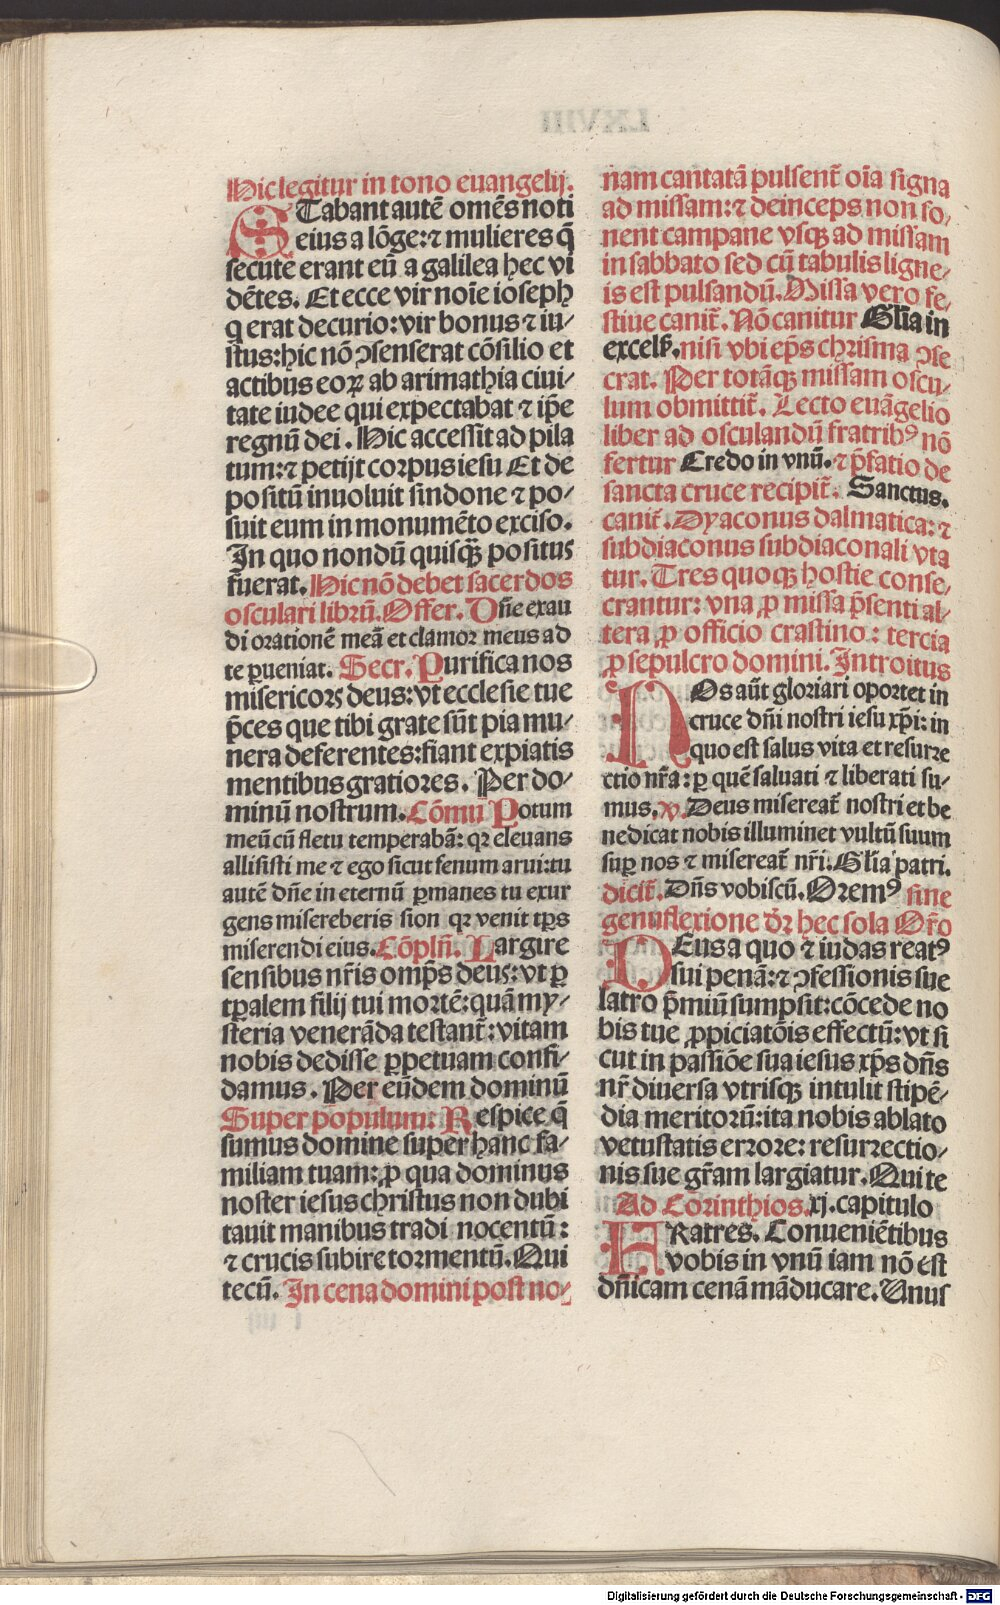 Hic legitur in tono euangelij.
STabant autē omēs noti
eius a lōge: ⁊ mulieres q̄
secute erant eū a galilea hec vi
dētes. Et ecce vir noīe ioseph
q erat decurio: vir bonus ⁊ iu⸗
stus: hic nō ↄsenserat cōsilio et
actibus eoꝝ ab arimathia ciui⸗
tate iudee qui expectabat ⁊ ip̄e
regnū dei. Hic accessit ad pila
tum: ⁊ petijt corpus iesu Et de
positū inuoluit sindone ⁊ po⸗
suit eum in monumēto exciso.
In quo nondū quisq̄ positus
fuerat. Hic nō debet sacerdos
osculari librū. Offer. Dn̄e exau
di orationē meā et clamor meus ad
te ꝑueniat. Secr. Purifica nos
misericors deus: vt ecclesie tue
p̄ces que tibi grate sūt pia mu⸗
nera deferentes: fiant expiatis
mentibus gratiores. Per do⸗
minū nostrum. Cōmu Potum
meū cū fletu temperabā: qꝛ eleuans
allisisti me ⁊ ego sicut fenum arui: tu
autē dn̄e in eternū ꝑmanes tu exur
gens misereberis sion qꝛ venit tp̄s
miserendi eius. Cōpln̄. Largire
sensibus nr̄is omp̄s deus: vt ꝑ
tp̄alem filij tui mortē: quā my⸗
steria venerāda testant̄: vitam
nobis dedisse ꝑpetuam confi⸗
damus. Per eūdem dominū
Super populum: Respice q̄
sumus domine super hanc fa⸗
miliam tuam: ꝓ qua dominus
noster iesus christus non dubi
tauit manibus tradi nocentū:
⁊ crucis subire tormentū. Qui
tecū. In cena domini post no⸗
nam cantatā pulsent̄ oīa signa
ad missam: ⁊ deinceps non so⸗
nent campane vsqꝫ ad missam
in sabbato sed cū tabulis ligne⸗
is est pulsandū. Missa vero fe⸗
stiue canit̄. Nō canitur Gl̄ia in
excels̄. nisi vbi ep̄s chrisma ↄse
crat. Per totāqꝫ missam oscu⸗
lum obmittit̄. Lecto euāgelio
liber ad osculandū fratribꝰ nō
fertur Credo in vnū. ⁊ p̄fatio de
sancta cruce recipit̄. Sanctus.
canit̄. Dyaconus dalmatica: ⁊
subdiaconus subdiaconali vta
tur. Tres quoqꝫ hostie conse⸗
crantur: vna ꝓ missa p̄senti al⸗
tera ꝓ officio crastino: tercia
ꝓ sepulcro domini. Introitus
NOs aūt gloriari oportet in
cruce dn̄i nostri iesu xp̄i: in
quo est salus vita et resurre
ctio nr̄a: ꝑ quē saluati ⁊ liberati su⸗
mus. v̄. Deus misereat̄ nostri et be
nedicat nobis illuminet vultū suum
suꝑ nos ⁊ misereat̄ nr̄i: Gl̄ia patri.
dicit̄. Dn̄s vobiscū. Oremꝰ sine
genuflexione dr̄ hec sola Or̄o
DEus a quo ⁊ iudas reatꝰ
sui penā: ⁊ ↄfessionis sue
latro p̄miū sumpsit: cōcede no
bis tue ꝓpiciatōis effectū: vt si
cut in passiōe sua iesus xp̄s dn̄s
nr̄ diuersa vtrisqꝫ intulit stipē⸗
dia meritorū: ita nobis ablato
vetustatis errore: resurrectio⸗
nis sue gr̄am largiatur. Qui te
Ad Corinthios. xj. capitulo
FRatres. Conueniētibus
vobis in vnū iam nō est
dn̄icam cenā māducare. Vnus
Digitalisierung gefördert durch die Deutsche Forschungsgemeinschaft - DFG